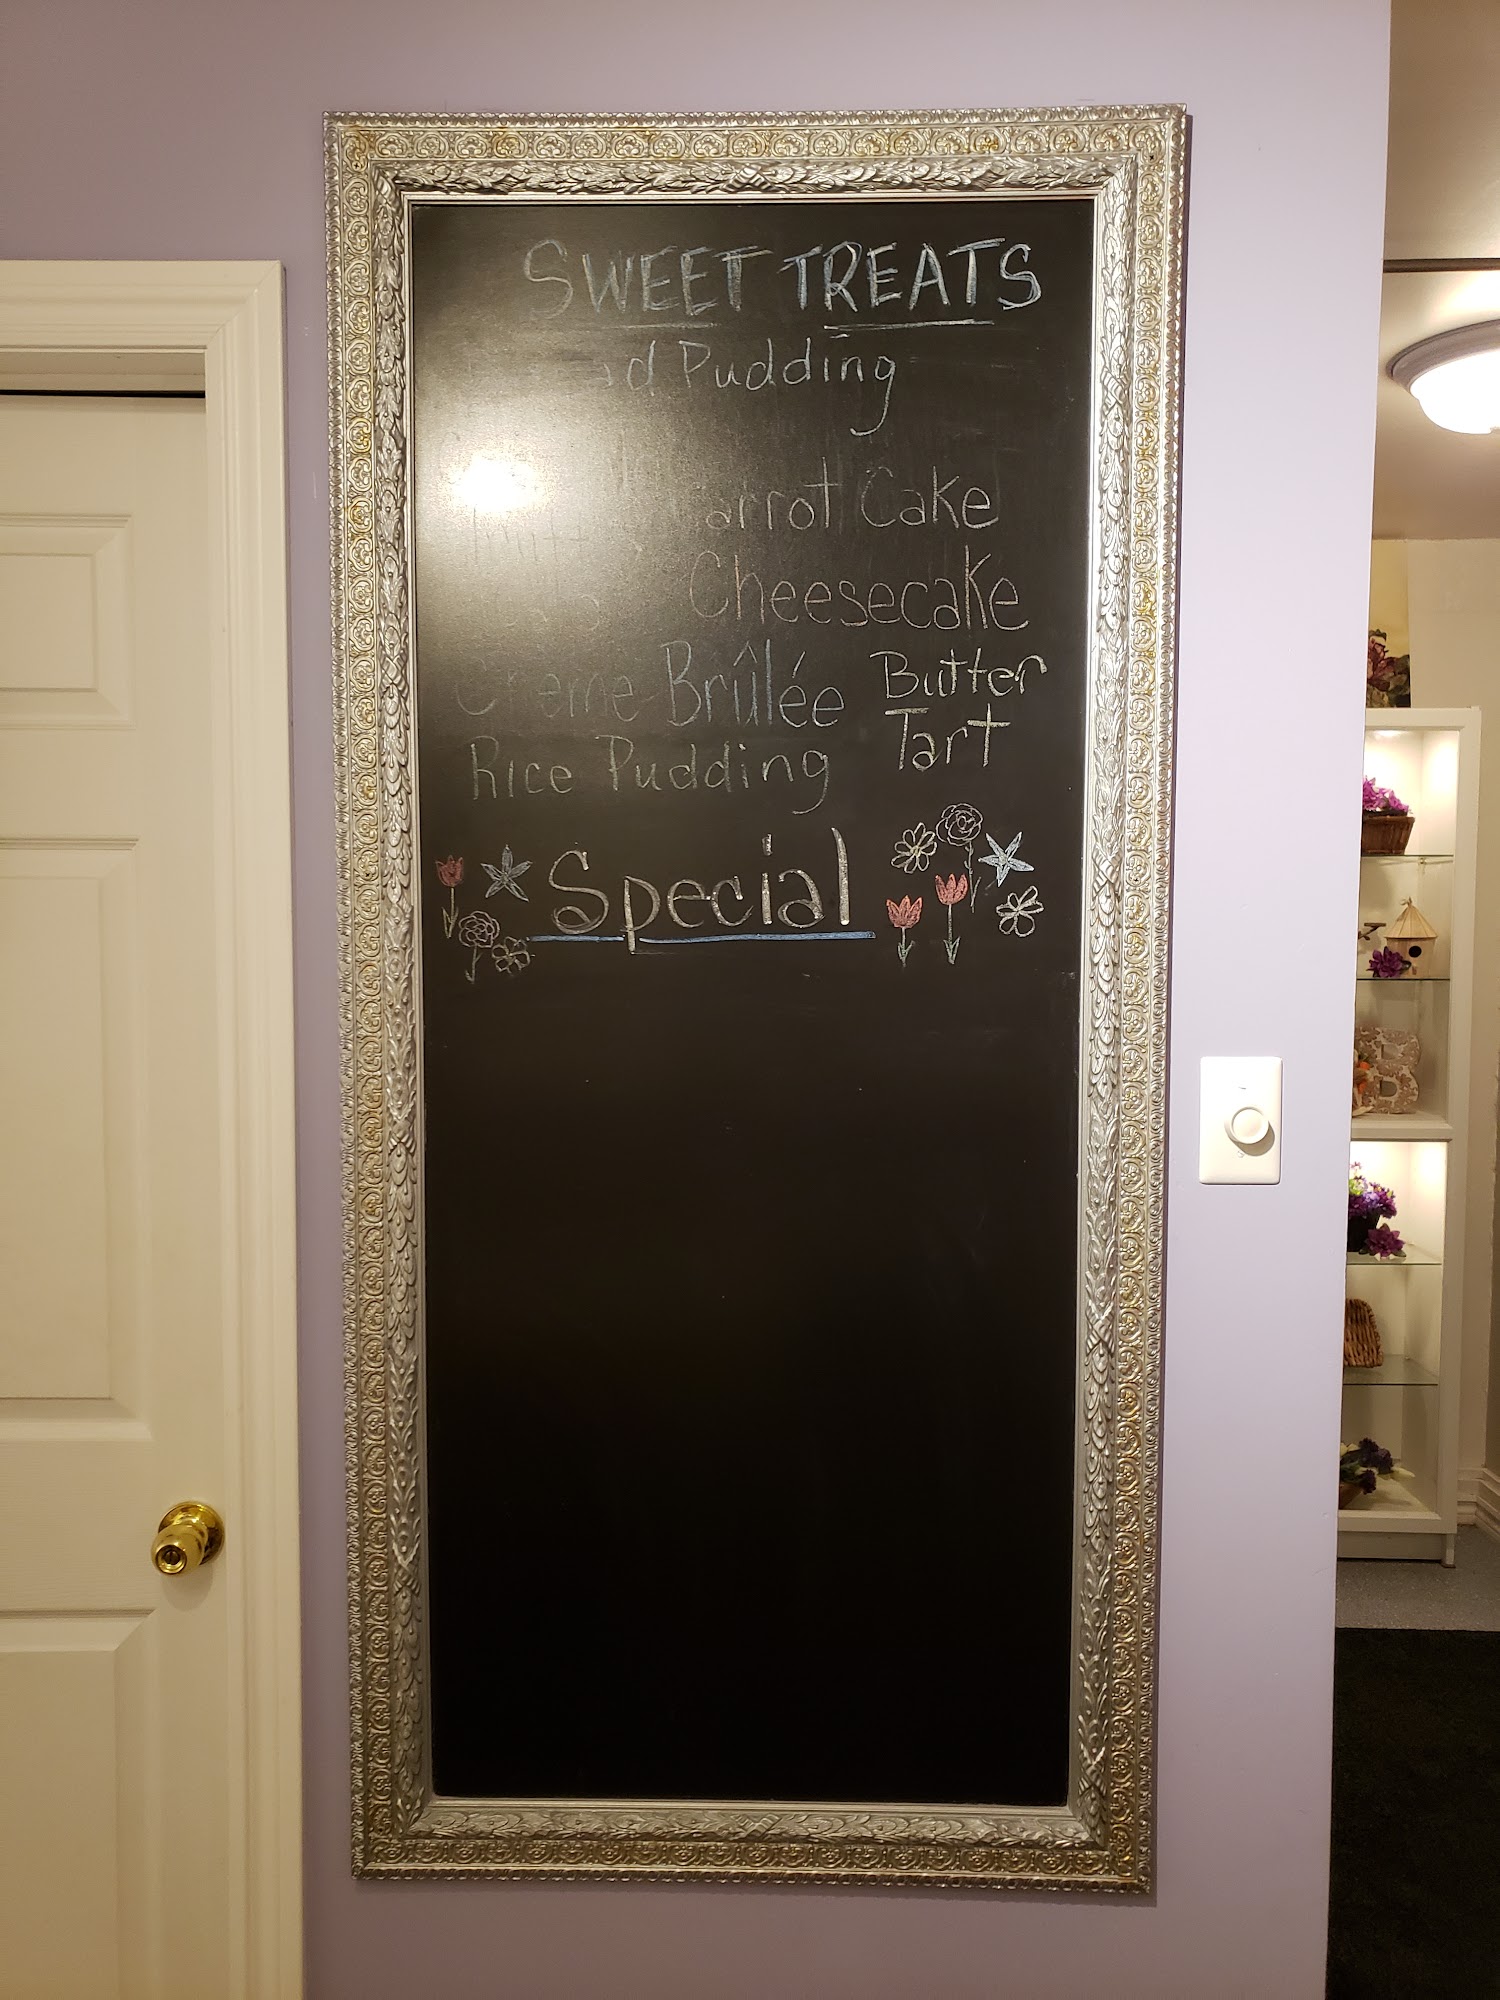 SWEET TREATS
Pudding
Carrot Cake
Cheesecake
Creme Brûlée
Butter
Tart
Rice Pudding
Special